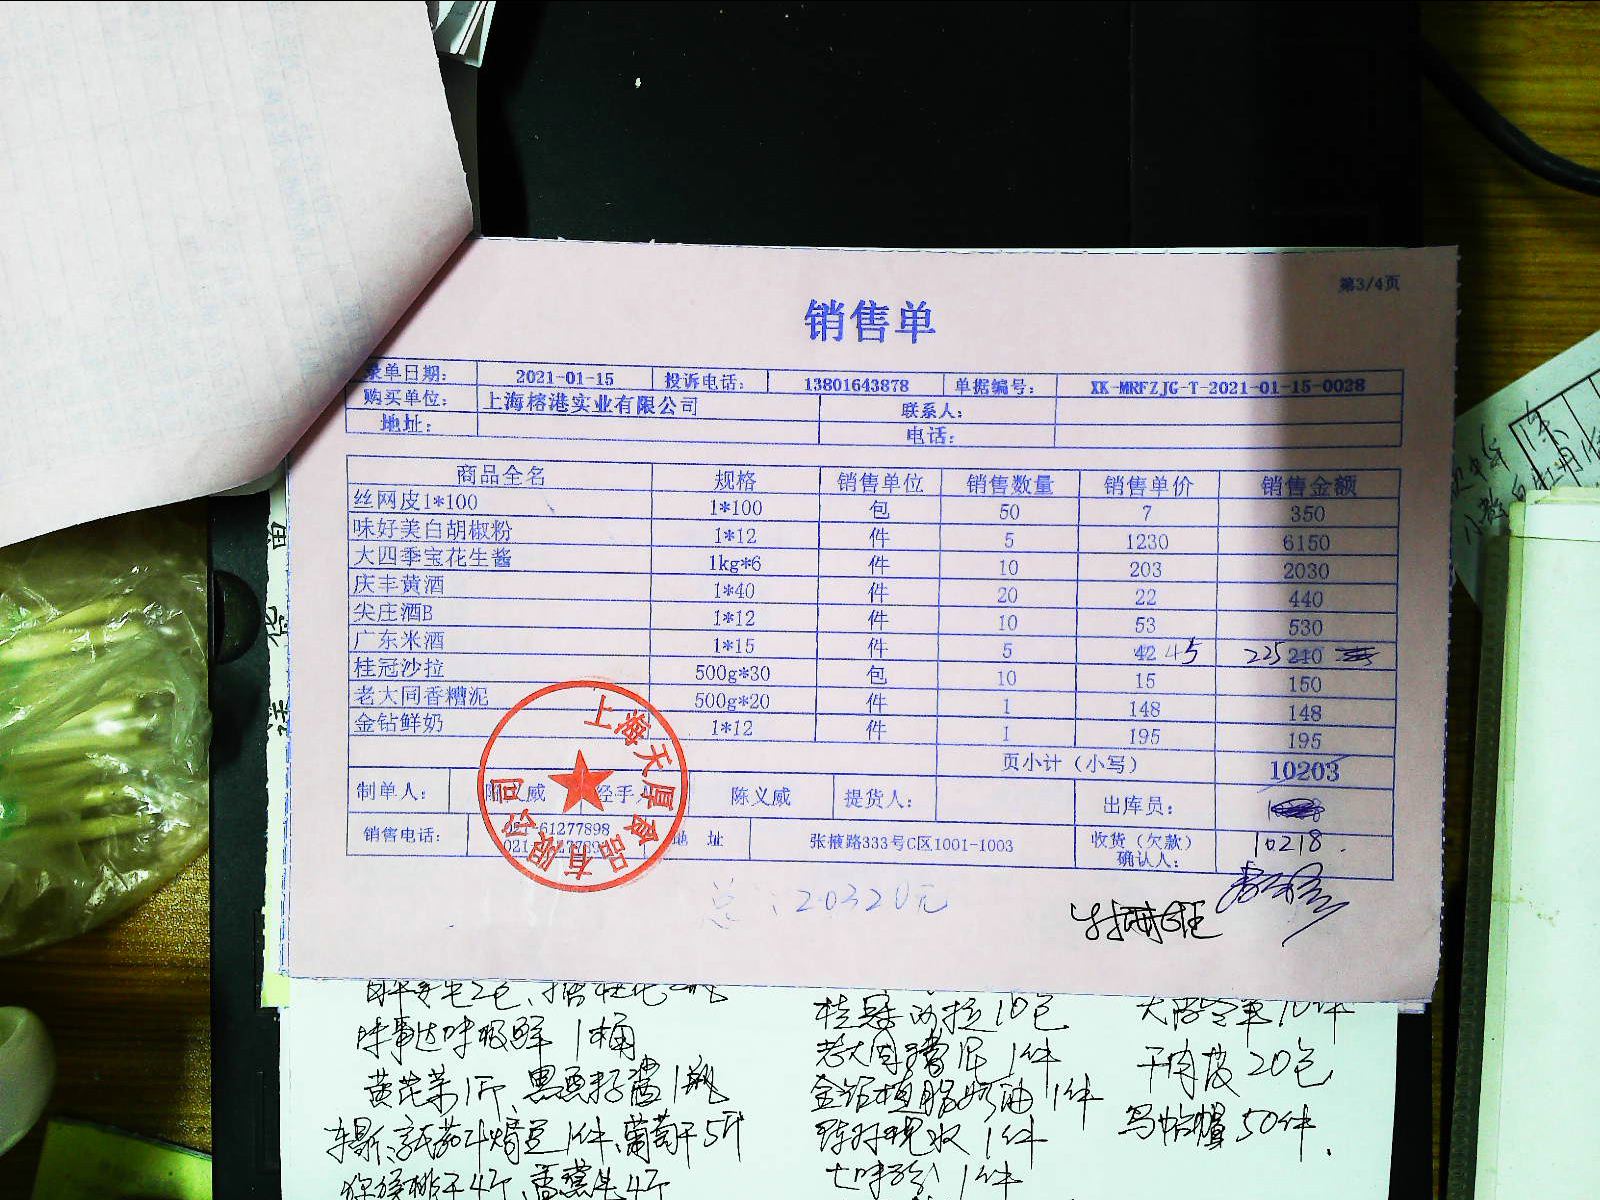 第3/4页
销售单
录单日期: 2021-01-15 投诉电话: 13801643878 单据编号: XK-MRFZJG-T-2021-01-15-0028
购买单位: 上海榕港实业有限公司 联系人:
地址: 电话:
商品全名 规格 销售单位 销售数量 销售单价 销售金额
丝网皮1*100 1*100 包 50 7 350
味好美白胡椒粉 1*12 件 5 1230 6150
大四季宝花生酱 1kg*6 件 10 203 2030
庆丰黄酒 1*40 件 20 22 440
尖庄酒B 1*12 件 10 53 530
广东米酒 1*15 件 5 42 45 225 210
桂冠沙拉 500g*30 包 10 15 150
老大同香糟泥 500g*20 件 1 148 148
金钻鲜奶 1*12 件 1 195 195
页小计（小写） 10203
制单人: 陈义威 经手人 陈义威 提货人: 出库员:
销售电话: 021-61277898 地 址 张掖路333号C区1001-1003 收货（欠款）确认人: 10218.
上海天厚食品有限公司
总:20320元
桂冠沙拉10包
味事达味极鲜 1桶 老大同糟泥 1件 干肉皮 20包
1瓶 金钻植脂奶油 1件
1件、葡萄干5斤 1件 50件.
七味粉 1件